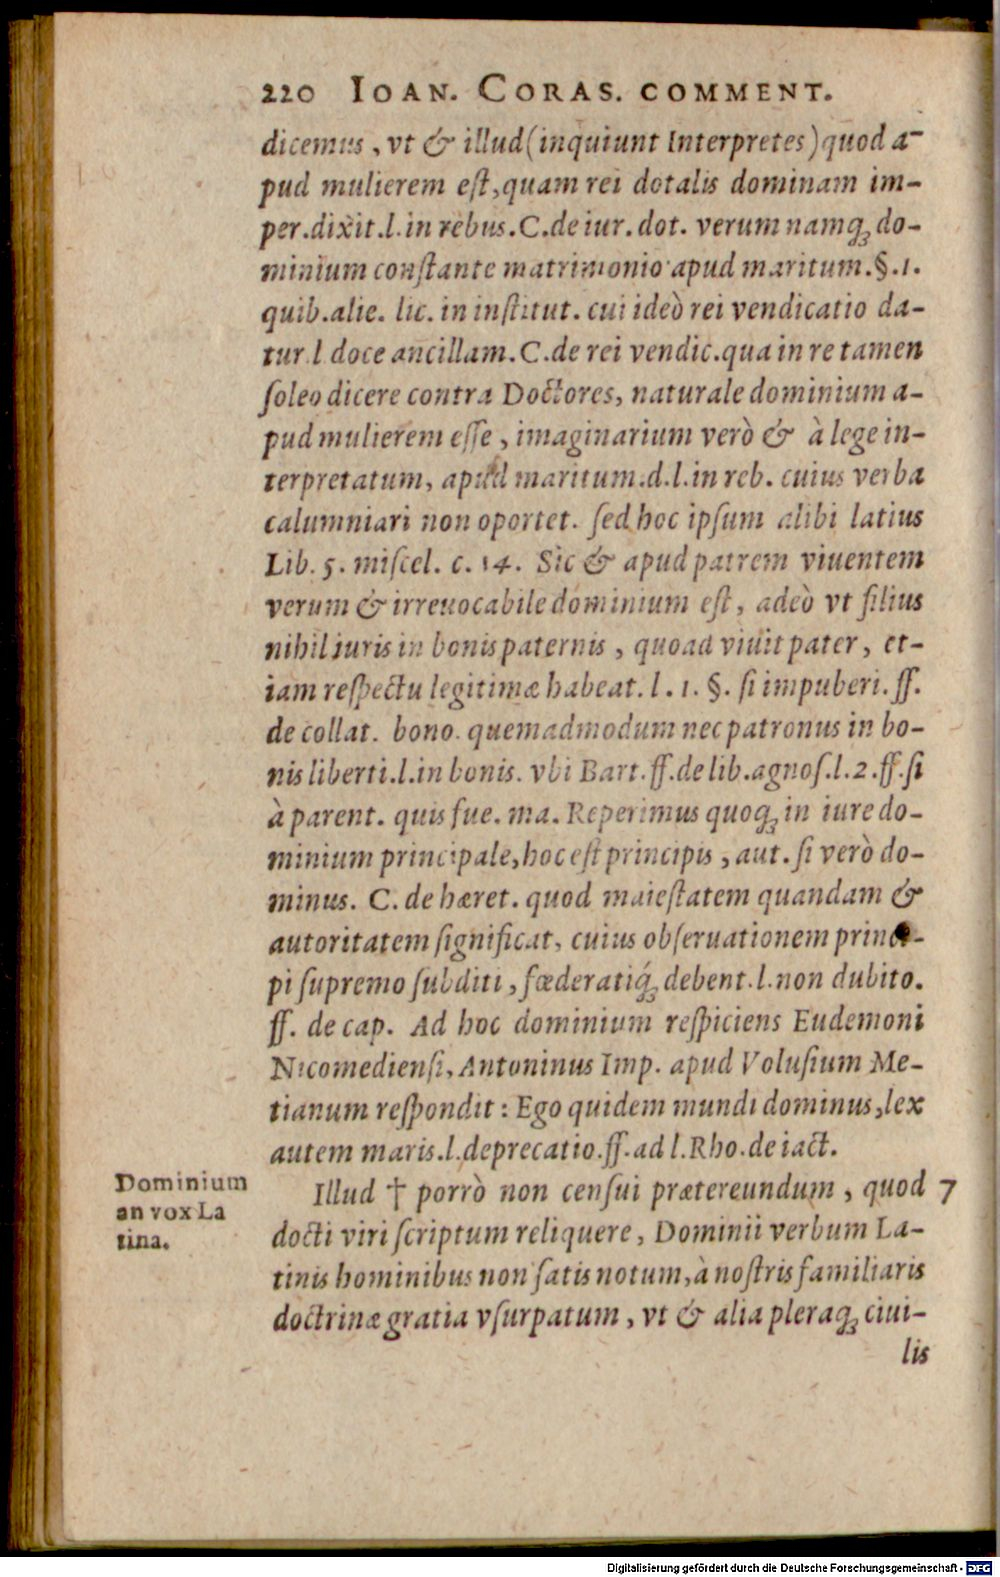 220 IOAN. CORAS. COMMENT.
dicemus, vt & illud (inquiunt Interpretes) quod a-
pud mulierem est, quam rei dotalis dominam im-
per. dixit. l. in rebus. C. de iur. dot. verum namq; do-
minium constante matrimonio apud maritum. §. 1.
quib. alie. lic. in institut. cui ideò rei vendicatio da-
tur. l doce ancillam. C. de rei vendic. qua in re tamen
soleo dicere contra Doctores, naturale dominium a-
pud mulierem esse, imaginarium verò & à lege in-
terpretatum, apud maritum. d. l. in reb. cuius verba
calumniari non oportet. sed hoc ipsum alibi latius
Lib. 5. miscel. c. 14. Sic & apud patrem viuentem
verum & irreuocabile dominium est, adeò vt filius
nihil iuris in bonis paternis, quoad viuit pater, et-
iam respectu legitimæ habeat. l. 1. §. si impuberi. ff.
de collat. bono. quemadmodum nec patronus in bo-
nis liberti. l. in bonis. vbi Bart. ff. de lib. agnos. l. 2. ff. si
à parent. quis fue. ma. Reperimus quoq; in iure do-
minium principale, hoc est principis, aut. si verò do-
minus. C. de hæret. quod maiestatem quandam &
autoritatem significat, cuius obseruationem princi-
pi supremo subditi, fœderatiq́; debent. l. non dubito.
ff. de cap. Ad hoc dominium respiciens Eudemoni
Nicomediensi, Antoninus Imp. apud Volusium Me-
tianum respondit: Ego quidem mundi dominus, lex
autem maris. l. deprecatio. ff. ad l. Rho. de iact.
Dominium
an vox La
tina.
Illud † porrò non censui prætereundum, quod 7
docti viri scriptum reliquere, Dominii verbum La-
tinis hominibus non satis notum, à nostris familiaris
doctrinæ gratia vsurpatum, vt & alia pleraq; ciui-
lis
Digitalisierung gefördert durch die Deutsche Forschungsgemeinschaft - DFG